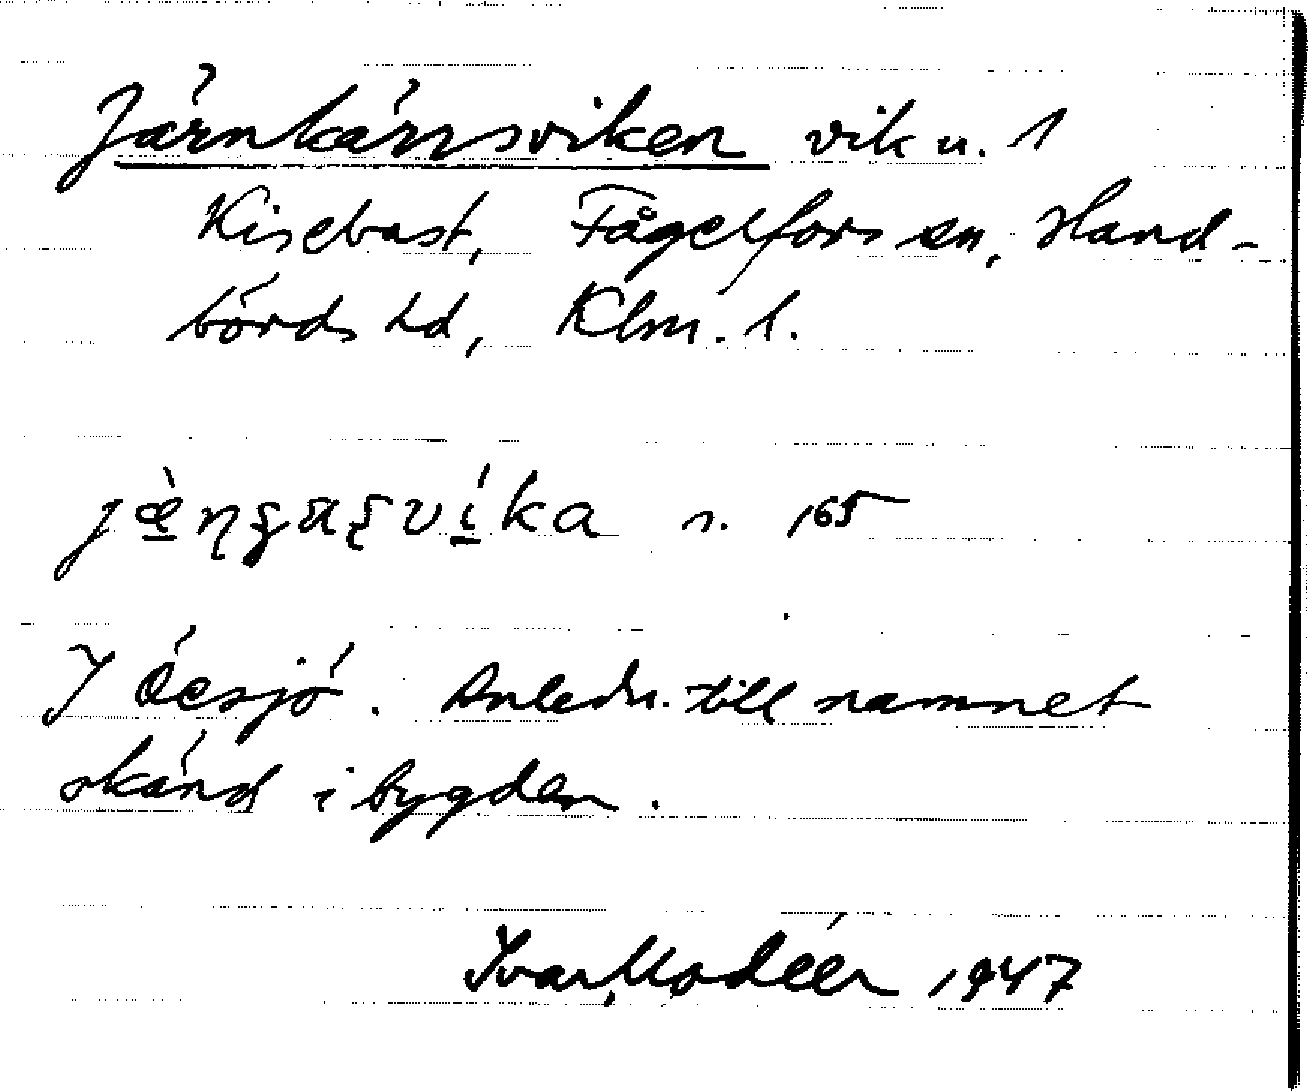 Järnkärrsviken vik u. 1
Kisebast, Fågelfors sn, Hand-
börds hd, Klm. l.
s. 165
I Öesjö. Anledn. till namnet
okänd i bygden.
Ivar Modéer 1947